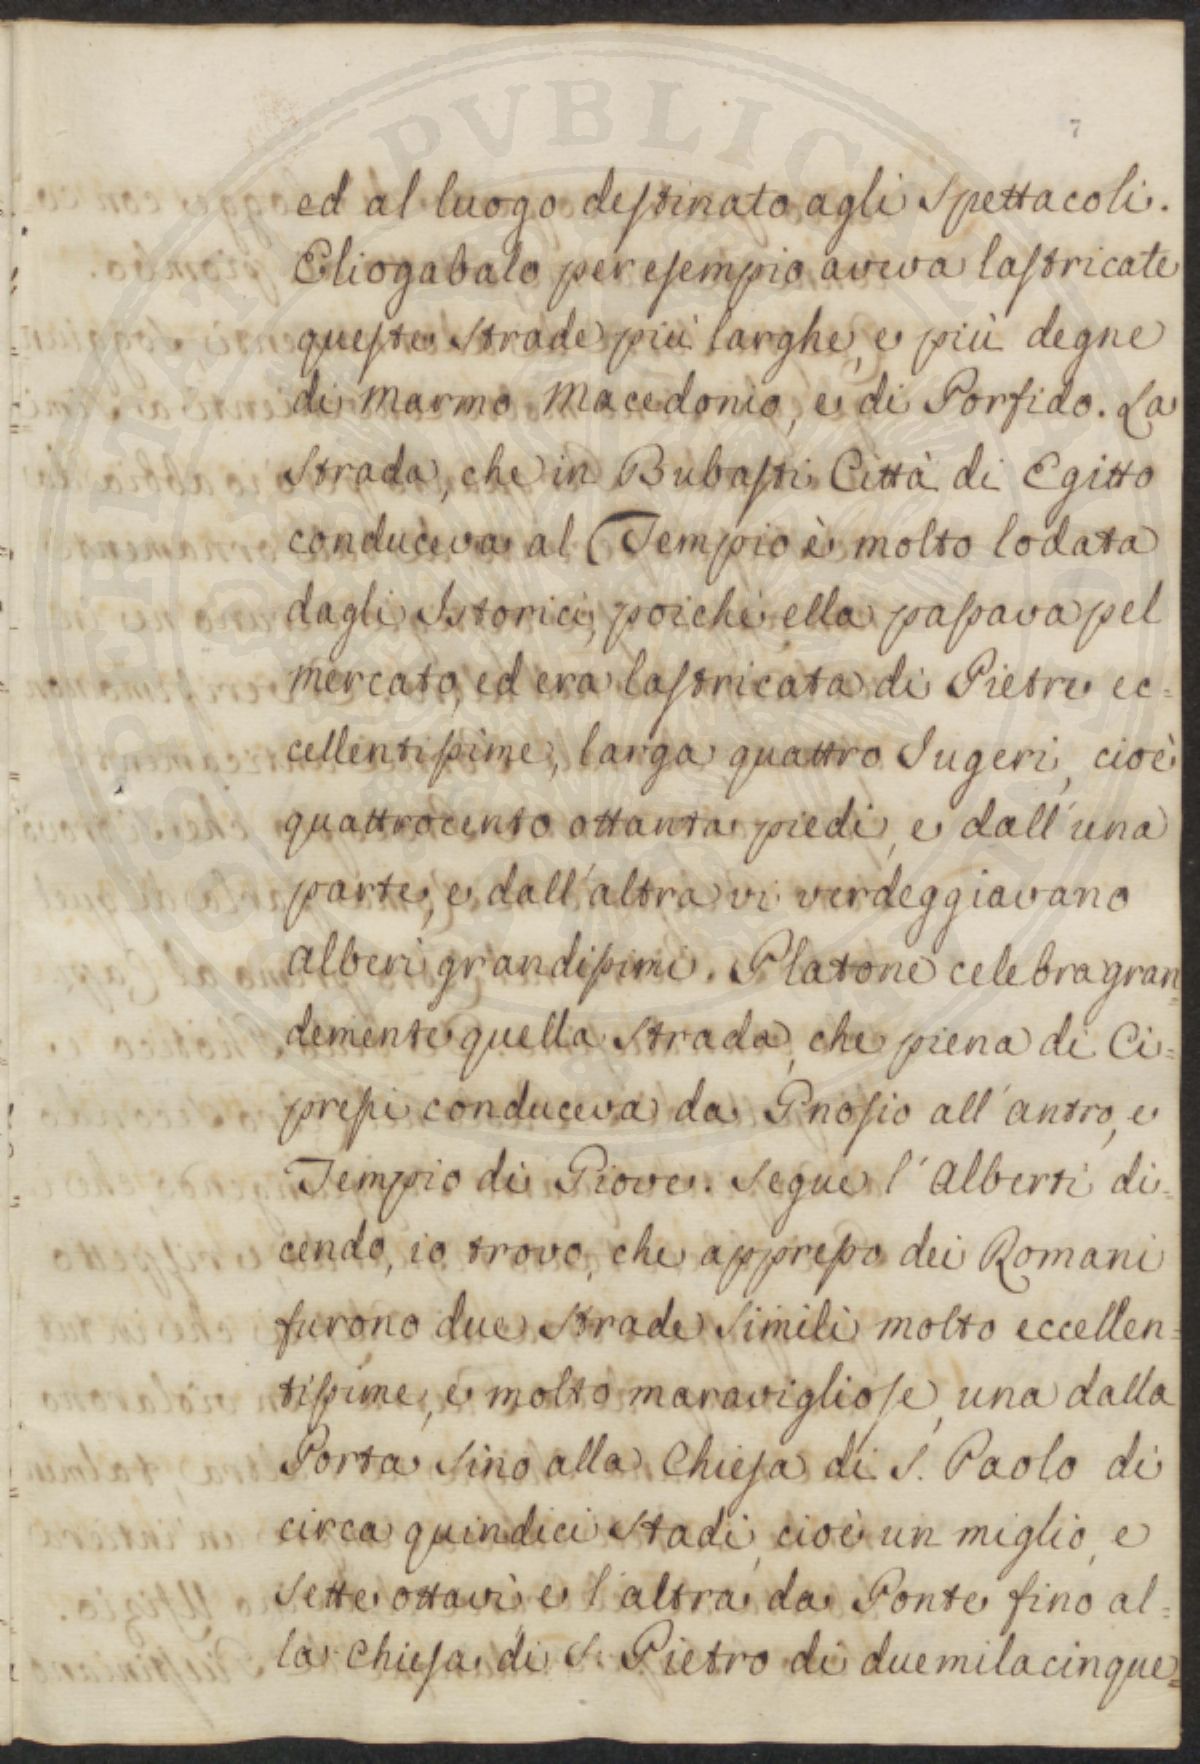 7
ed al luogo destinato agli Spettacoli.
Eliogabalo per esempio aveva lastricate
queste Strade più larghe, e più degne
di Marmo Macedonio, e di Porfido. La
Strada, che in Bubasti Città di Egitto
conduceva al Tempio è molto lodata
dagli Istorici, poichè ella passava pel
mercato, ed era lastricata di Pietre ec=
cellentissime, larga quattro Iugeri, cioè
quattrocento ottanta piedi, e dall'una
parte, e dall'altra vi verdeggiavano
alberi grandissimi. Platone celebra gran=
demente quella Strada, che piena di Ci=
pressi conduceva da Gnosio all'antro, e
Tempio di Giove. Segue l'Alberti di=
cendo, io trovo, che appresso dei Romani
furono due Strade Simili molto eccellen=
tissime, e molto maravigliose, una dalla
Porta Sino alla Chiesa di S. Paolo di
circa quindici Stadi, cioè un miglio, e
Sette ottavi e l'altra da Ponte fino al=
la Chiesa di S. Pietro di duemilacinque=